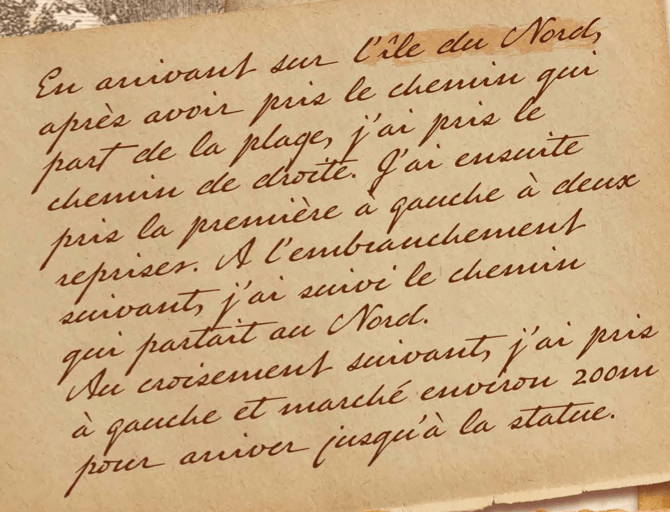 En arrivant sur l'île du Nord,
après avoir pris le chemin qui
part de la plage, j'ai pris le
chemin de droite. J'ai ensuite
pris la première à gauche à deux
reprises. A l'embranchement
suivant, j'ai suivi le chemin
qui partait au Nord.
Au croisement suivant, j'ai pris
à gauche et marché environ 200m
pour arriver jusqu'à la statue.